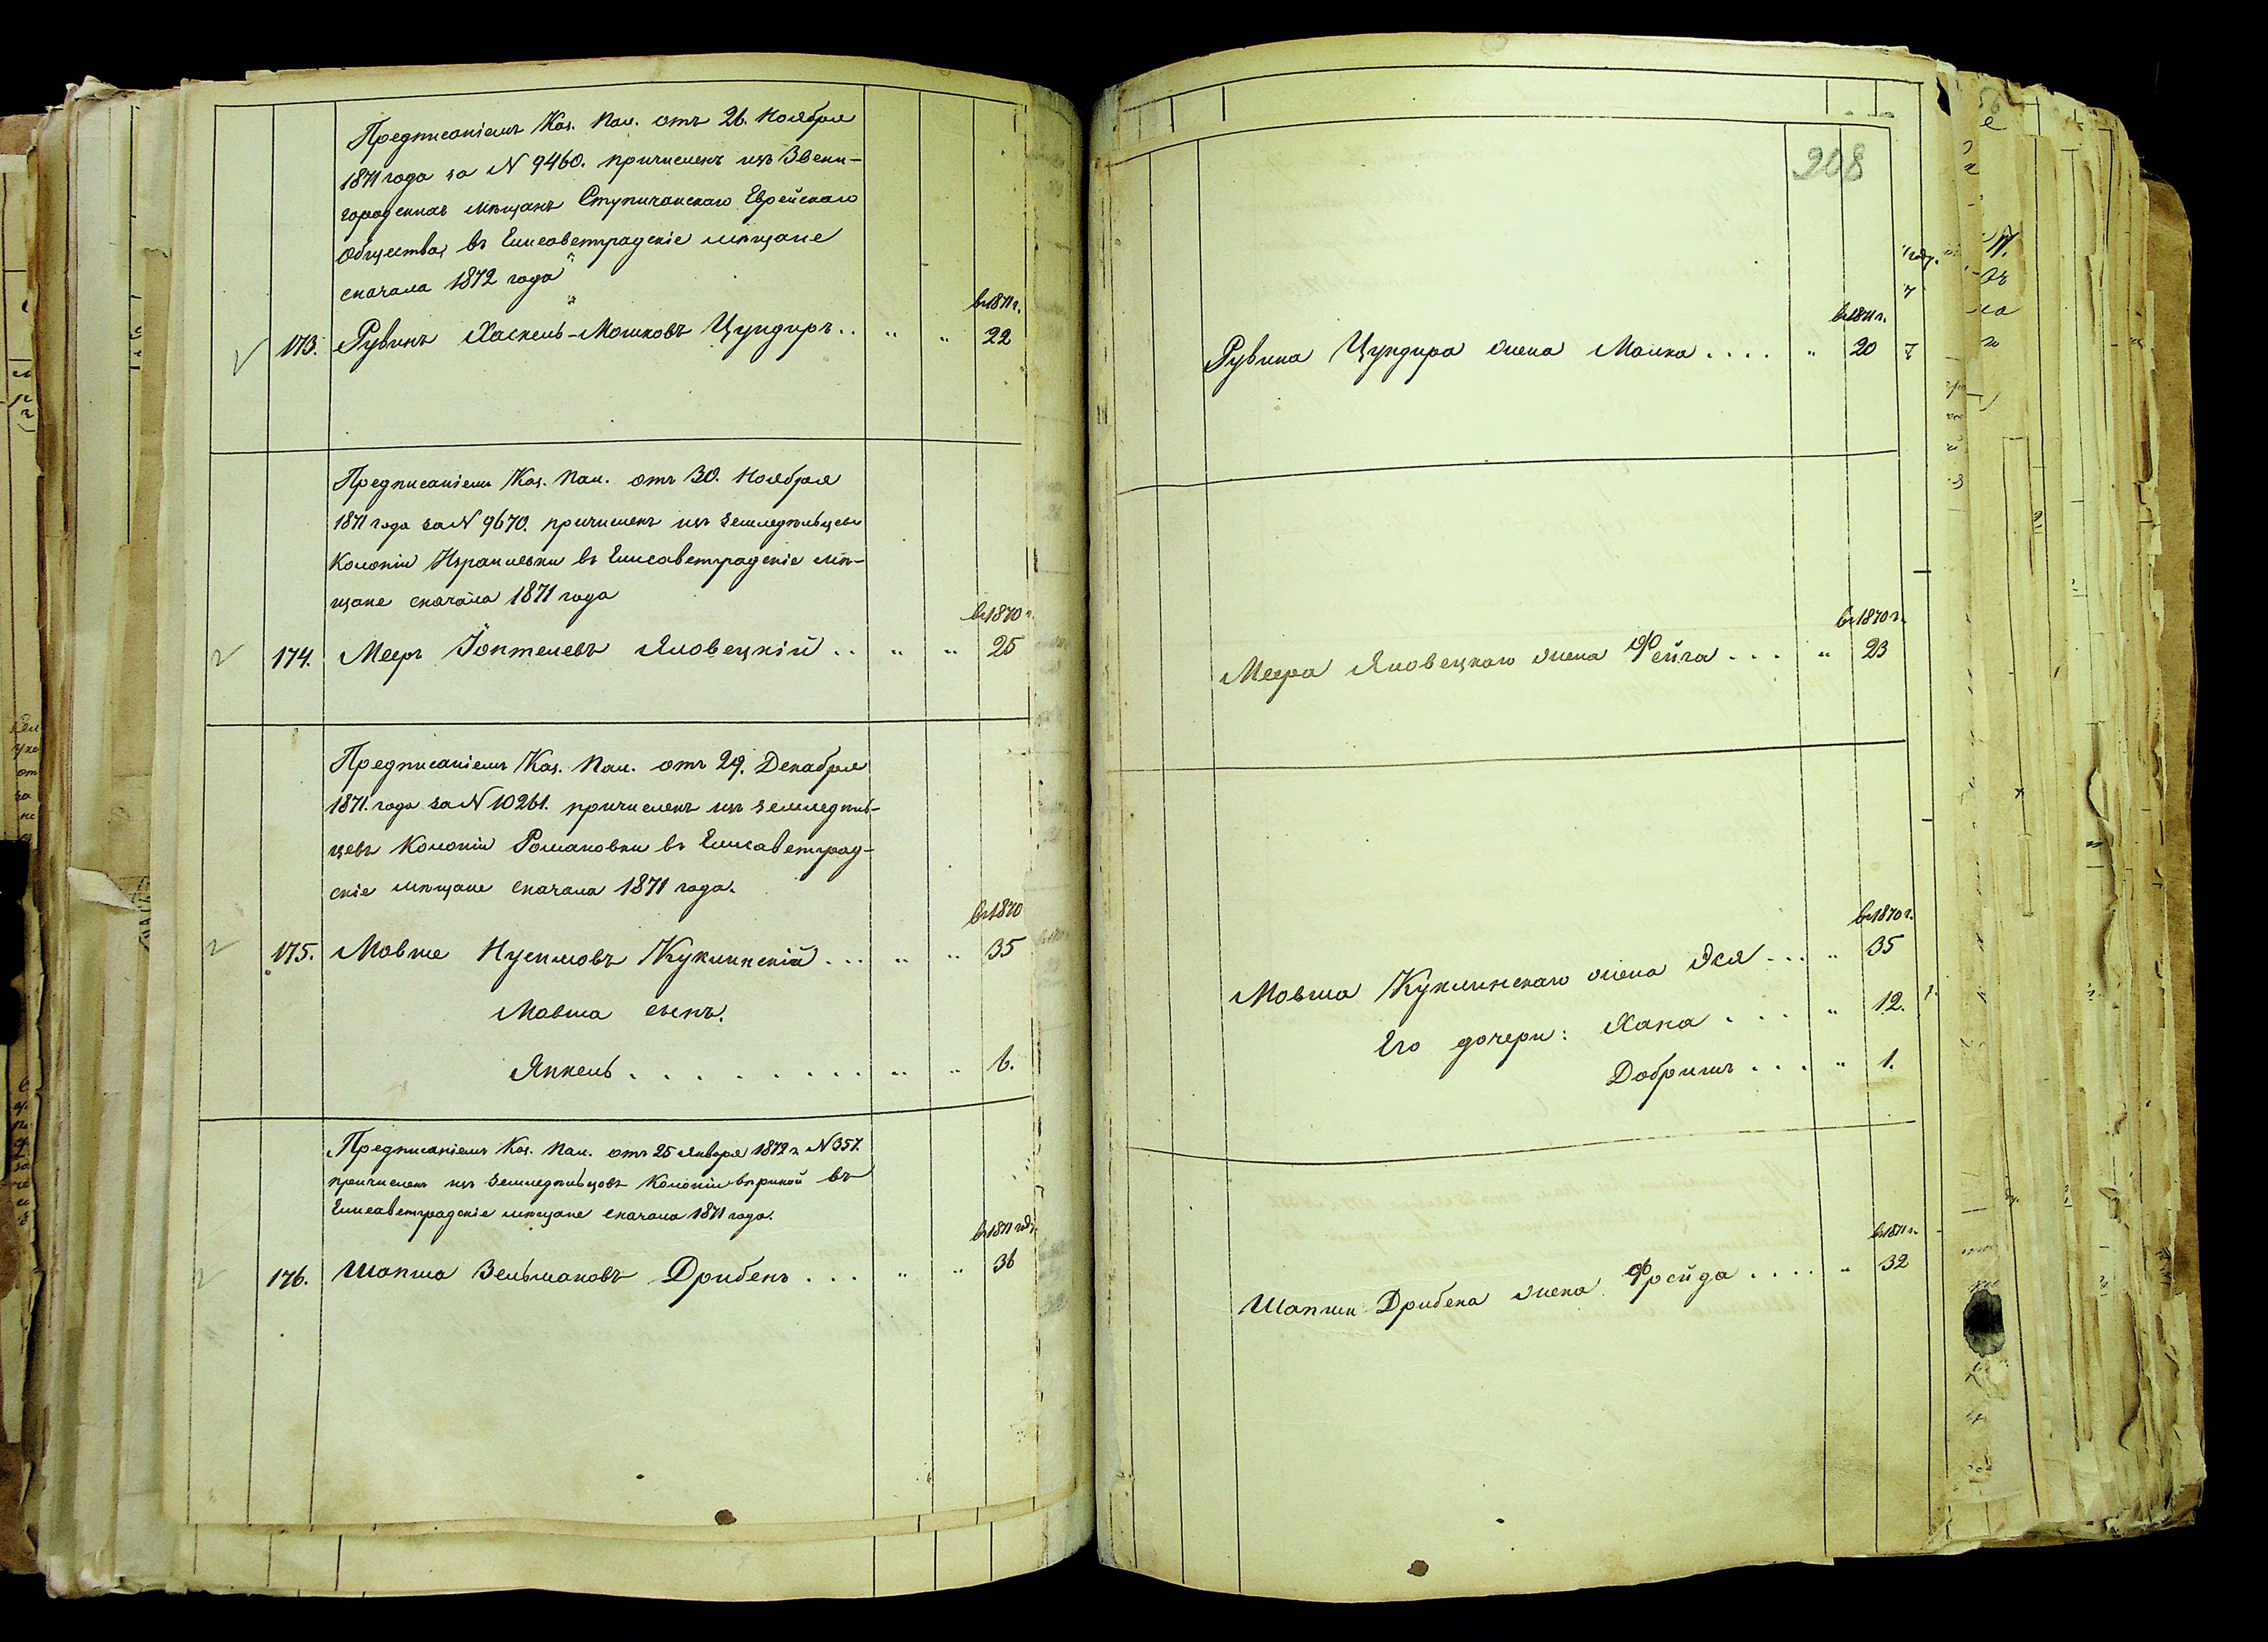 Предписаніемъ Каз. Пал. отъ 26. Ноября
1871 года за N 9460. причисленъ изъ Звени-
городскихъ мѣщанъ Ступичанскаго Еврейскаго
Общества, въ Елисаветградскіе мѣщане
сначала 1872 года
въ 1871 г.
173. Рувинъ Хаскель-Мошковъ Цундиръ . . " " 22
Предписаніемъ Каз. Пал. отъ 30. Ноября
1871 года за N 9670. причисленъ изъ земледѣльцевъ
Колоніи Израилевки въ Елисаветградскіе мѣ-
щане сначала 1871 года
въ 1870 г.
174. Мееръ Іонтелевъ Яновецкій . . " " 25
Предписаніемъ Каз. Пал. отъ 29. Декабря
1871. года за N 10261. причисленъ изъ земледѣль-
цевъ Колоніи Романовки въ Елисаветград-
скіе мѣщане сначала 1871 года.
въ 1870
175. Мовше Нусимовъ Куклинскій . . . " " 35
Мовша сынъ.
Янкель . . . . . . . . . " " 6.
Предписаніемъ Каз. Пал. отъ 25 Января 1872 г. N 357.
причисленъ изъ земледѣльцовъ Колоніи въ
Елисаветградскіе мѣщане сначала 1871 года.
въ 1871 году
176. Шапша Зельмановъ Дрибенъ . . . " " 36
208
въ 1871 г.
Рувина Цундира жена Малка . . . . " 20
въ 1870 г.
Меера Яновецкаго жена Фейга . . . " 23
въ 1870 г.
Мовша Куклинскаго жена Эся . . . " 35
Его дочери: Хана . . . " 12.
Добришъ . . . " 1.
въ 1871 г.
Шапши Дрибена жена Фрейда . . . . " 32